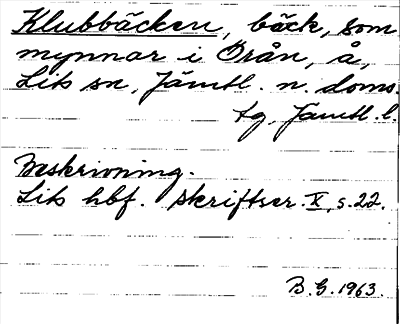 Klubbäcken, bäck, som
mynnar i Örån, å,
Liks sn, Jämtl. n. doms.
tg, Jämtl. l.
Beskrivning.
Liks hbf. skriftser. X, s. 22.
B.G. 1963.